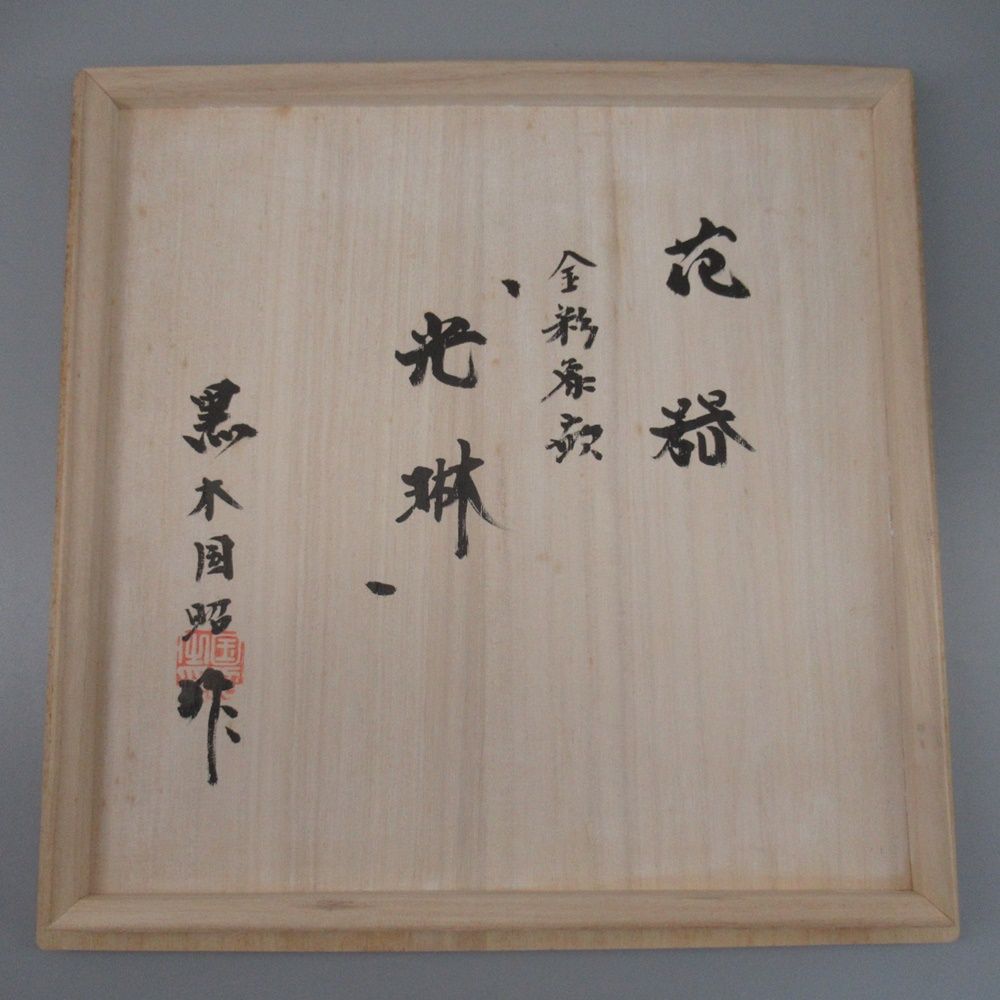 花器
金彩象嵌
、光琳、
黒木国昭
作